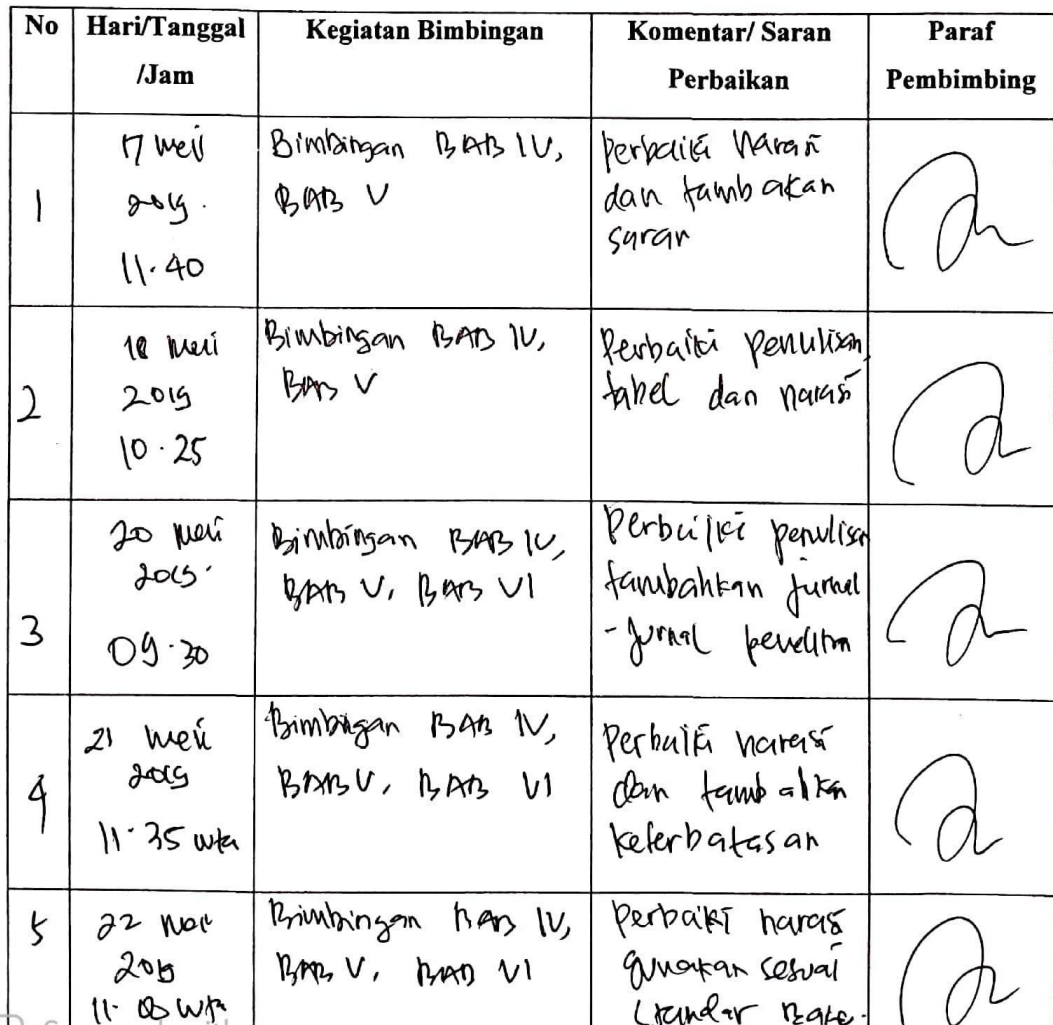 No Hari/Tanggal Kegiatan Bimbingan Komentar/ Saran Paraf
/Jam Perbaikan Pembimbing
1
17 Mei
2019.
11.40
Bimbingan BAB IV,
BAB V
Perbaiki Narasi
dan tambakan
saran
2
18 Mei
2019
10.25
Bimbingan BAB IV,
BAB V
Perbaiki penulisan,
tabel dan narasi
3
20 Mei
2019.
09.30
Bimbingan BAB IV,
BAB V, BAB VI
Perbaiki penulisan
tambahkan jurnal
-jurnal
4
21 Mei
2019
11.35 wita
Bimbingan BAB IV,
BAB V, BAB VI
Perbaiki narasi
dan tambahkan
keterbatasan
5
22 Mei
2019
11. wita
Bimbingan BAB IV,
BAB V, BAB VI
Perbaiki narasi
gunakan sesuai
standar